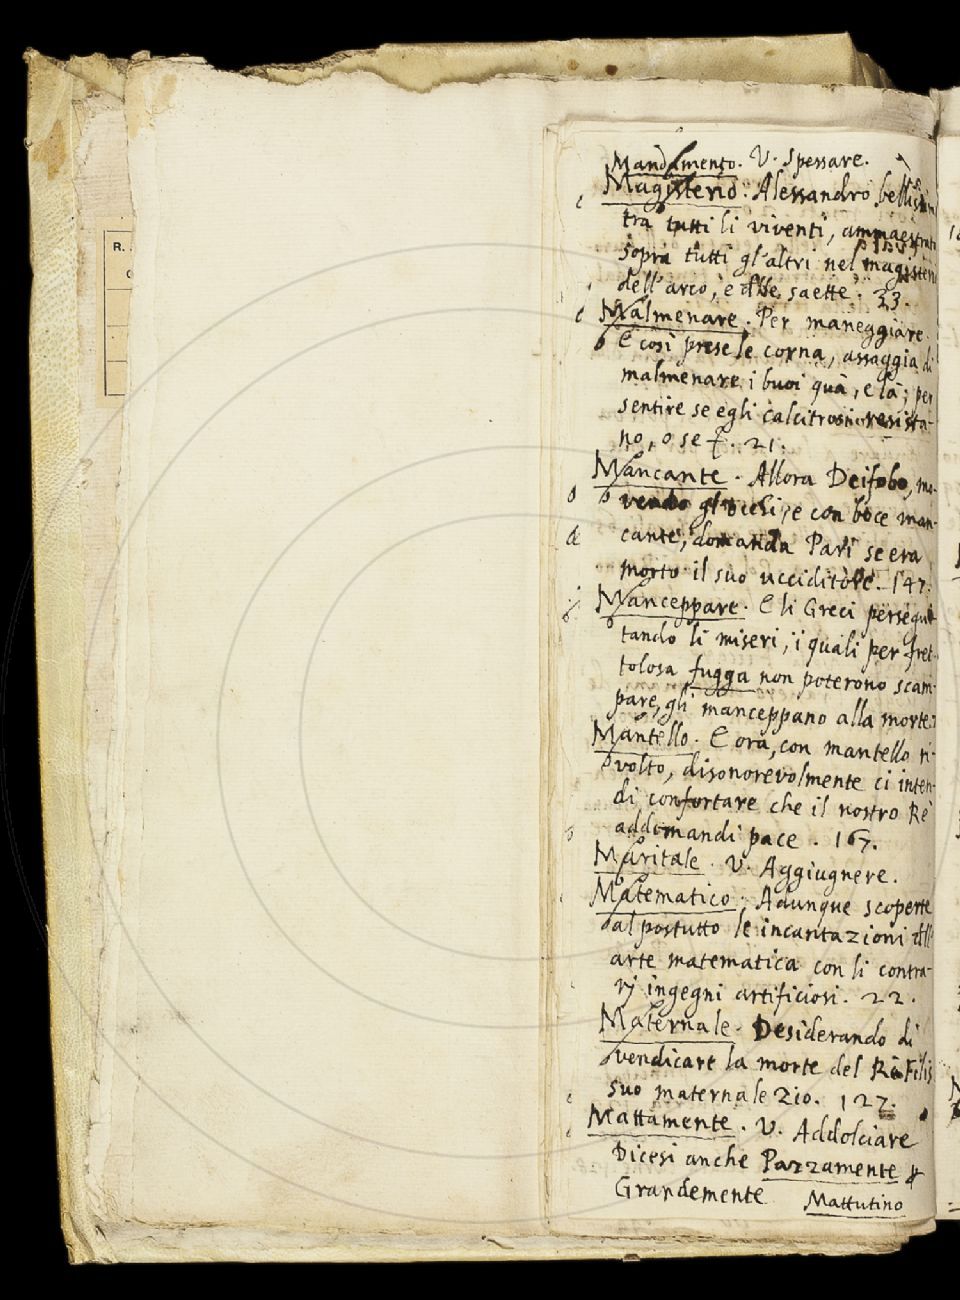 Mandamento. V. Spessare.
Magisterio. Alessandro bellissim
tra tutti li viventi, ammaestrato
sopra tutti gl'altri nel magisterio
dell'arco, e delle saette. 33.
Malmenare. Per maneggiare.
E così prese le corna, assaggia di
malmenare i buoi quà, e là; per
sentire se egli calcitrosi resista-
no, o se 21.
Mancante. Allora Deifobo, mo-
vendo gl'occhi, e con boce man-
cante, domanda Pari se era
morto il suo ucciditore. 147.
Manceppare. E li Greci persegui
tando li miseri, i quali per fret-
tolosa fugga non poterono scam-
pare, gli manceppano alla morte.
Mantello. E ora, con mantello ri-
volto, disonorevolmente ci inten-
di confortare che il nostro Rè
addomandi pace. 167.
Maritale. V. Aggiugnere.
Matematico. Adunque scoperte
dal postutto le incantazioni dell'
arte matematica con li contra-
rj ingegni artificiosi. 22.
Maternale. Desiderando di
vendicare la morte del Rè Filis
suo maternale Zio. 127.
Mattamente. V. Addolciare
Dicesi anche Pazzamente &
Grandemente
Mattutino
R.